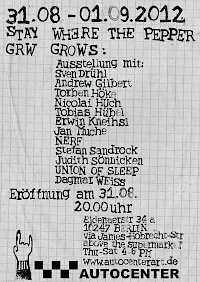 31.08 - 01.09 2012
STAY WHERE THE PEPPER
GRW GROWS:
Ausstellung mit:
Sven Drühl
Andrew Gilbert
Torben Höke
Nicolai Huch
Tobias Hübel
Erwin Kneihsl
Jan Muche
NERF
Stefan Sandrock
Judith Sönnicken
UNION OF SLEEP
Dagmar Weiss
Eröffnung am 31.08.
20.00 uhr
Eldenaerstr 34 a
10247 BERLIN
via James-Hobrecht-Str
above the supermarket
Thu-Sat 4-6 PM
www.autocenterart.de
AUTOCENTER